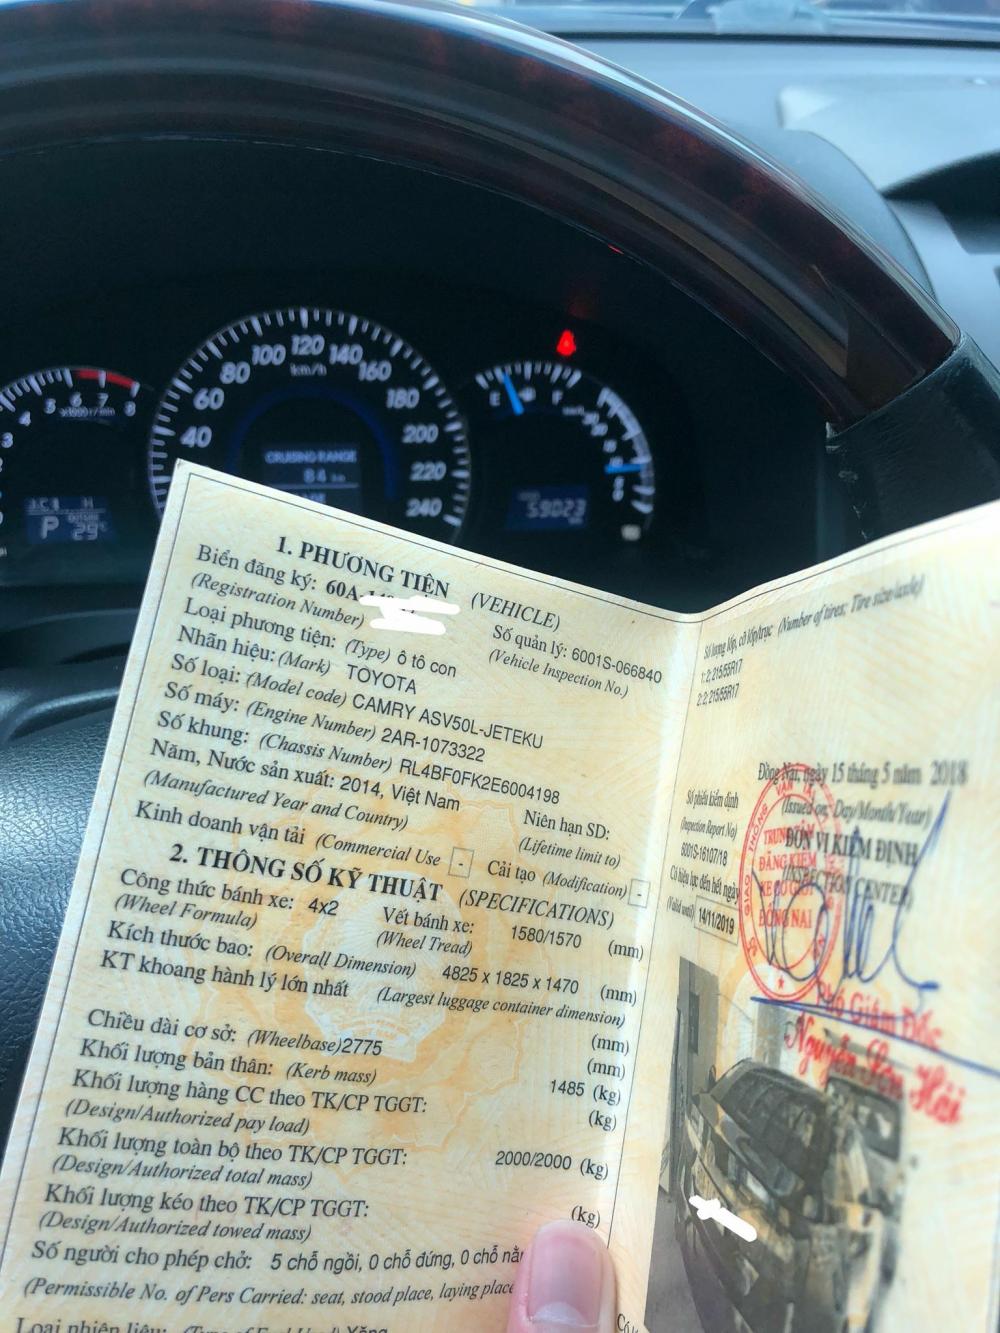 100 120 140
80 km/h 160
60 180
40 200
220
240
4 5 6 7 8
x1000r/min
3
2
E F
CRUISING RANGE
84 km
P OUTSIDE 29°C
59023
1. PHƯƠNG TIỆN (VEHICLE)
Biển đăng ký: 60A-
(Registration Number)
Số quản lý: 6001S-066840
(Vehicle Inspection No.)
Loại phương tiện: (Type) ô tô con
Nhãn hiệu: (Mark) TOYOTA
Số loại: (Model code) CAMRY ASV50L-JETEKU
Số máy: (Engine Number) 2AR-1073322
Số khung: (Chassis Number) RL4BF0FK2E6004198
Năm, Nước sản xuất: 2014, Việt Nam
(Manufactured Year and Country)
Niên hạn SD:
(Lifetime limit to)
Kinh doanh vận tải (Commercial Use - Cải tạo (Modification) -
2. THÔNG SỐ KỸ THUẬT (SPECIFICATIONS)
Công thức bánh xe: 4x2
(Wheel Formula)
Vết bánh xe: 1580/1570 (mm)
(Wheel Tread)
Kích thước bao: (Overall Dimension) 4825 x 1825 x 1470 (mm)
KT khoang hành lý lớn nhất (Largest luggage container dimension)
(mm)
Chiều dài cơ sở: (Wheelbase)2775 (mm)
Khối lượng bản thân: (Kerb mass) 1485 (kg)
Khối lượng hàng CC theo TK/CP TGGT: (kg)
(Design/Authorized pay load)
Khối lượng toàn bộ theo TK/CP TGGT: 2000/2000 (kg)
(Design/Authorized total mass)
Khối lượng kéo theo TK/CP TGGT: (kg)
(Design/Authorized towed mass)
Số người cho phép chở: 5 chỗ ngồi, 0 chỗ đứng, 0 chỗ nằ
(Permissible No. of Pers Carried: seat, stood place, laying place
Loại nhiên liệu: (Type of Fuel Used) Xăng
Số lượng lốp, cỡ lốp/trục (Number of tires; Tire size/axle)
1: 2; 215/55R17
2: 2; 215/55R17
Đồng Nai, ngày 15 tháng 5 năm 2018
(Issued on: Day/Month/Year)
ĐƠN VỊ KIỂM ĐỊNH
(INSPECTION CENTER)
Số phiếu kiểm định
(Inspection Report No)
6001S-16107/18
Có hiệu lực đến hết ngày
(Valid until) 14/11/2019
GIAO THÔNG VẬN TẢI
TRUNG TÂM
ĐĂNG KIỂM
XE CƠ GIỚI
ĐỒNG NAI
Phó Giám Đốc
Nguyễn Sơn Hải